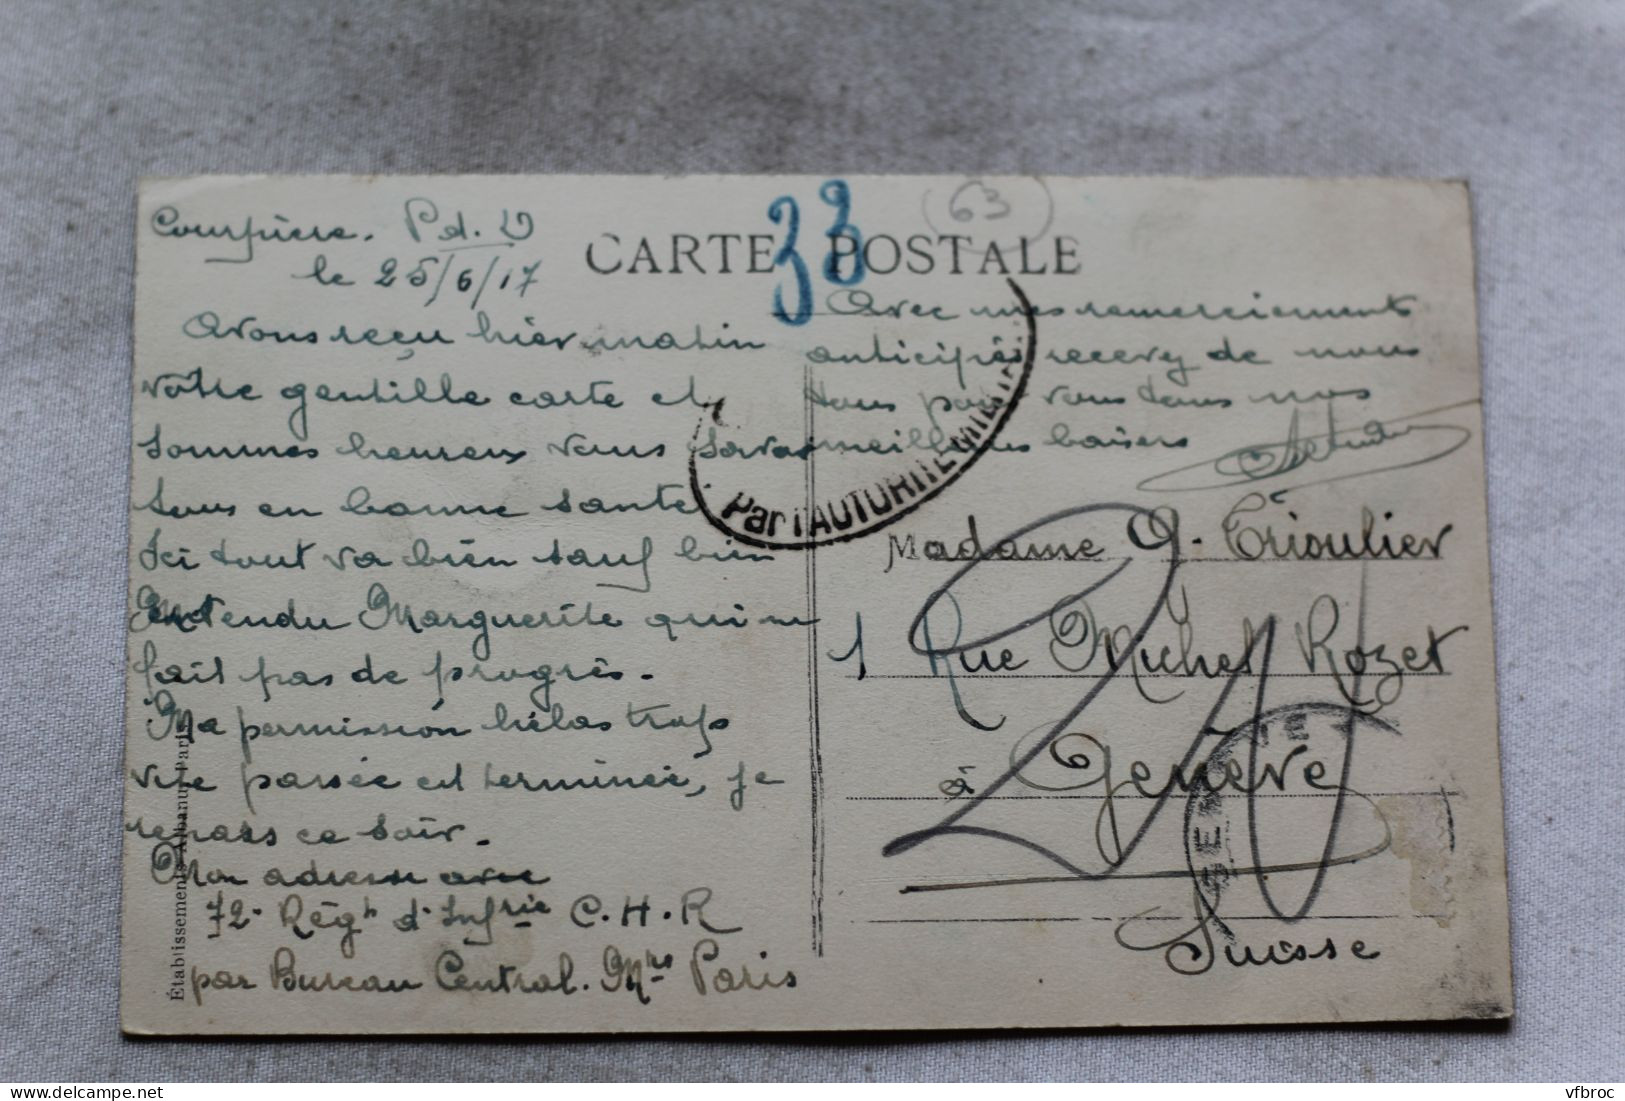 Courpière. P d. D
le 25/6/17
CARTE POSTALE
33
63
Avons reçu hier matin
votre gentille carte et
sommes heureux vous savoir
tous en bonne santé
Ici tout va bien sauf bien
Entendu Marguerite qui ne
fait pas de progrès.
Ma permission hélas trop
vite passée est terminée, je
repars ce soir.
Mon adresse avec
72e Régt d'Infrie C.H.R
par Bureau Central. Mre Paris
Avec mes remerciements
anticipés recevez de nous
tous pour vous tous nos
meilleurs baisers
Par l'AUTORITE MILITAIRE
Madame G. Trioulier
1 Rue Michel Rozet
à Genève
Suisse
Établissements Albanur Paris